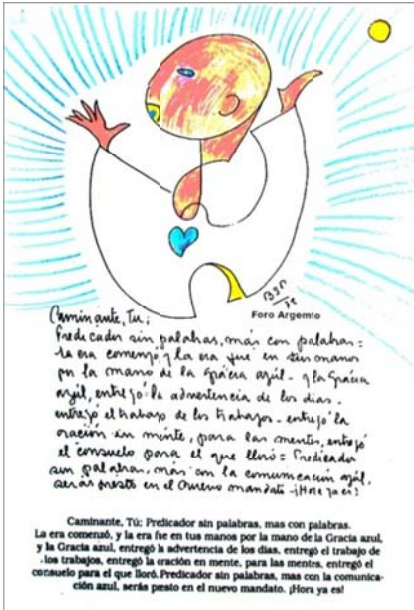 Foro Argemio
Caminante, Tú:
Predicador sin palabras, más con palabras:
la era comenzó, y la era fue en tus manos
por la mano de la Gracia azul - y la Gracia
azul, entregó la advertencia de los días -
entregó el trabajo de los trabajos - entregó la
oración en mente, para las mentes, entregó
el consuelo para el que lloró = Predicador
sin palabras, más con la comunicación azul,
serás presto en el nuevo mandato - ¡Hora ya es!
Caminante, Tú: Predicador sin palabras, mas con palabras.
La era comenzó, y la era fie en tus manos por la mano de la Gracia azul,
y la Gracia azul, entregó la advertencia de los días, entregó el trabajo de
los trabajos, entregó la oración en mente, para las mentes, entregó el
consuelo para el que lloró.Predicador sin palabras, mas con la comunica-
ción azul, serás pesto en el nuevo mandato. ¡Hora ya es!